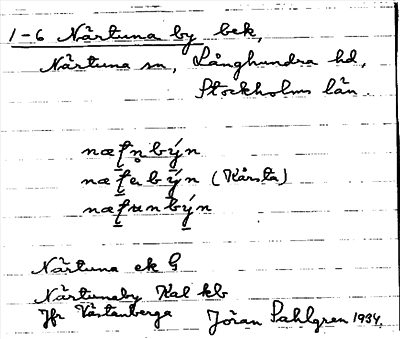 1-6 Närtuna by bek,
Närtuna sn, Långhundra hd,
Stockholms län.
(Kårsta)
Närtuna ek G
Närtunaby Kal kb
Jfr Västanberga Jöran Sahlgren 1934.